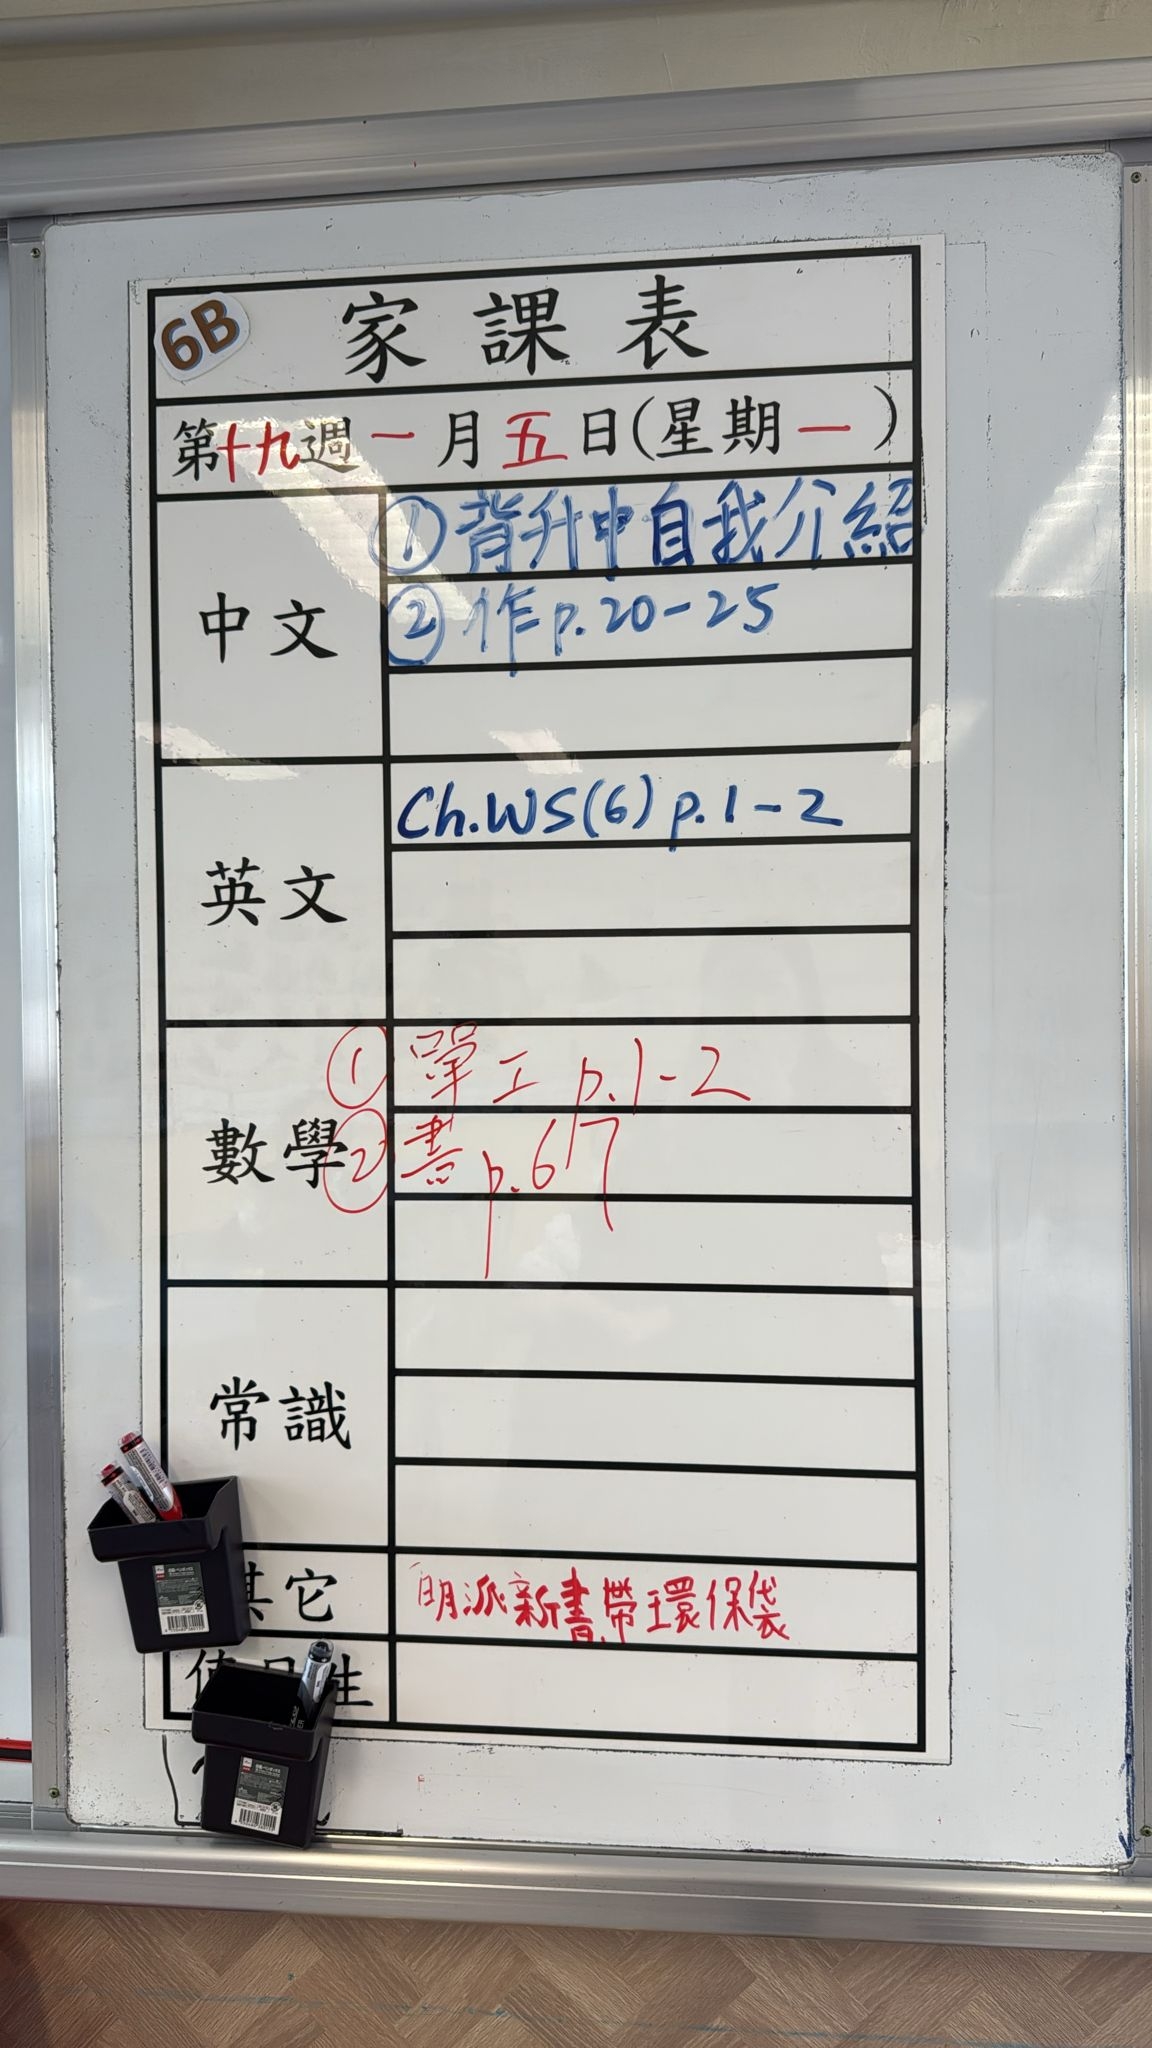 6B
家課表
第十九週一月五日(星期一)
中文
①背升中自我介紹
②作p.20-25
英文
Ch.WS(6)p.1-2
數學
①單工 p.1-2
②書p.67
常識
其它
明派新書,帶環保袋
值日生